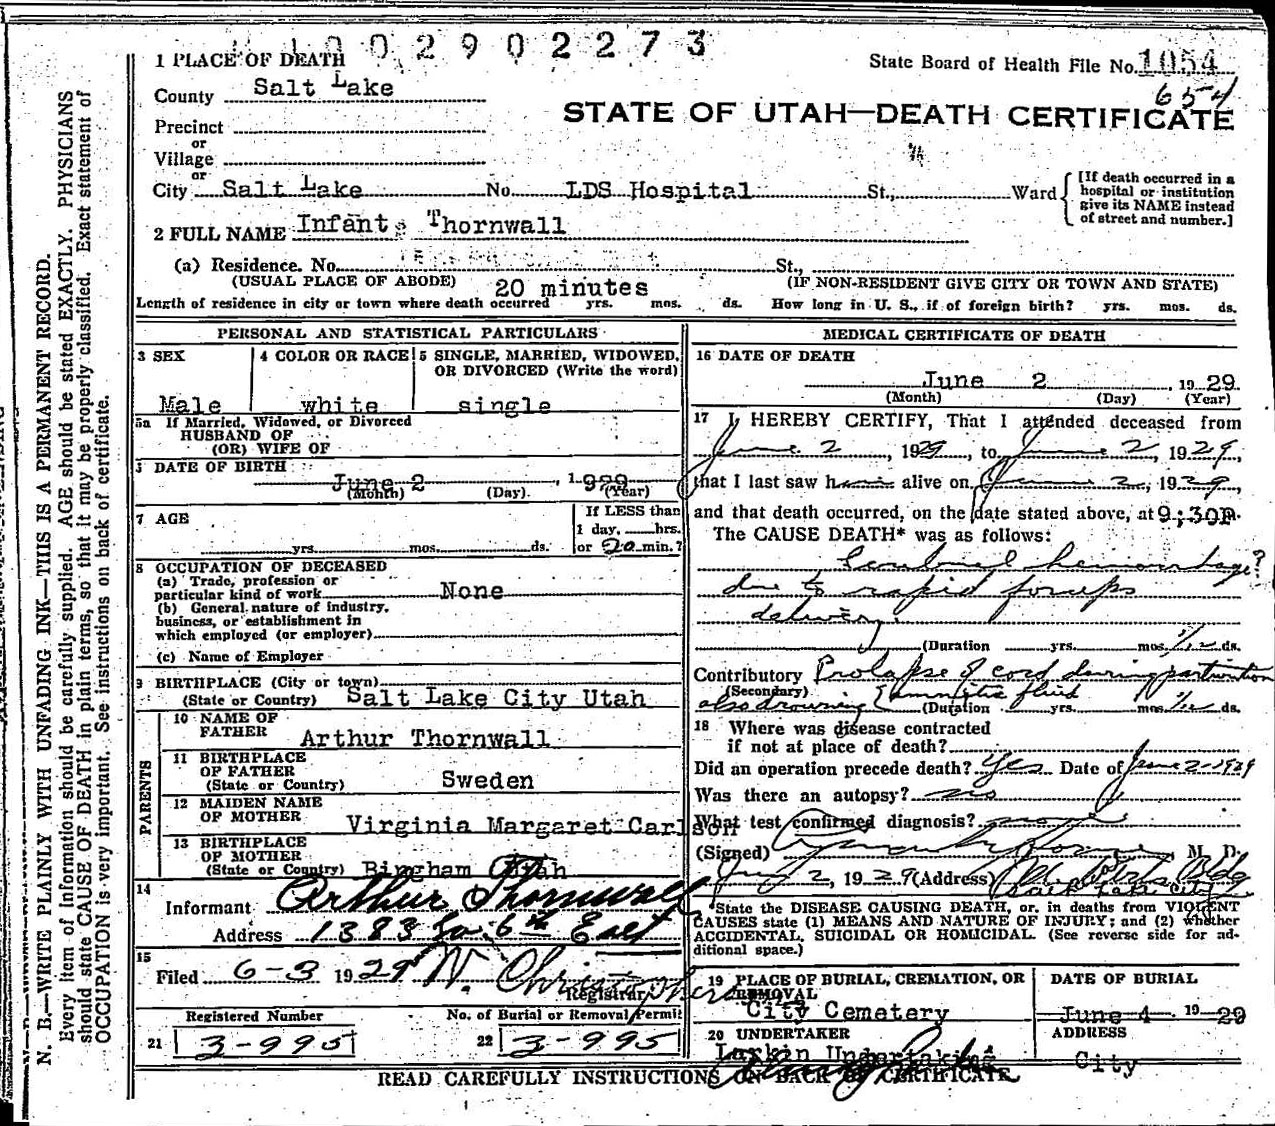 1002902273
1 PLACE OF DEATH
State Board of Health File No. 1054
654
County Salt Lake
STATE OF UTAH—DEATH CERTIFICATE
Precinct
or
Village
or
City Salt Lake No. LDS Hospital St., Ward
[If death occurred in a hospital or institution give its NAME instead of street and number.]
2 FULL NAME Infant Thornwall
(a) Residence. No. St.,
(USUAL PLACE OF ABODE) 20 minutes (IF NON-RESIDENT GIVE CITY OR TOWN AND STATE)
Length of residence in city or town where death occurred yrs. mos. ds. How long in U. S., if of foreign birth? yrs. mos. ds.
PERSONAL AND STATISTICAL PARTICULARS
3 SEX
Male
4 COLOR OR RACE
white
5 SINGLE, MARRIED, WIDOWED,
OR DIVORCED (Write the word)
single
5a If Married, Widowed, or Divorced
HUSBAND OF
(OR) WIFE OF
DATE OF BIRTH
June 2, 1929
(Month) (Day). (Year)
7 AGE
yrs. mos. ds.
If LESS than
1 day, hrs.
or 20 min.?
8 OCCUPATION OF DECEASED
(a) Trade, profession or
particular kind of work None
(b) General nature of industry,
business, or establishment in
which employed (or employer)
(c) Name of Employer
9 BIRTHPLACE (City or town)
(State or Country) Salt Lake City Utah
PARENTS
10 NAME OF
FATHER Arthur Thornwall
11 BIRTHPLACE
OF FATHER
(State or Country) Sweden
12 MAIDEN NAME
OF MOTHER Virginia Margaret Carlson
13 BIRTHPLACE
OF MOTHER
(State or Country) Bingham Utah
14
Informant Arthur Thornwall
Address 1383 So. 6th East
15
Filed 6-3 1929 N. Christophers
Registrar
Registered Number
21 3-995
No. of Burial or Removal Permit
22 3-995
MEDICAL CERTIFICATE OF DEATH
16 DATE OF DEATH
June 2, 1929
(Month) (Day) (Year)
17 I HEREBY CERTIFY, That I attended deceased from
June 2, 1929, to June 2, 1929,
that I last saw him alive on June 2, 1929,
and that death occurred, on the date stated above, at 9;30P.
The CAUSE DEATH* was as follows:
Cerebral hemorrhage?
due to rapid forceps
delivery.
(Duration yrs. mos. 1/12 ds.
Contributory Prolapse of cord during parturition
(Secondary)
also drowning amniotic fluid
(Duration yrs. mos. 1/12 ds.
18 Where was disease contracted
if not at place of death?
Did an operation precede death? Yes Date of June 2-1929
Was there an autopsy? no
What test confirmed diagnosis?
(Signed) M. D.
2, 1929 (Address) Bldg
Salt Lake City
*State the DISEASE CAUSING DEATH, or, in deaths from VIOLENT
CAUSES state (1) MEANS AND NATURE OF INJURY; and (2) whether
ACCIDENTAL, SUICIDAL OR HOMICIDAL. (See reverse side for ad-
ditional space.)
19 PLACE OF BURIAL, CREMATION, OR
REMOVAL
City Cemetery
DATE OF BURIAL
June 4 1929
20 UNDERTAKER
Larkin Undertaking
ADDRESS
City
READ CAREFULLY INSTRUCTIONS ON BACK OF CERTIFICATE
N. B.—WRITE PLAINLY WITH UNFADING INK—THIS IS A PERMANENT RECORD.
Every item of information should be carefully supplied. AGE should be stated EXACTLY. PHYSICIANS
should state CAUSE OF DEATH in plain terms, so that it may be properly classified. Exact statement of
OCCUPATION is very important. See instructions on back of certificate.